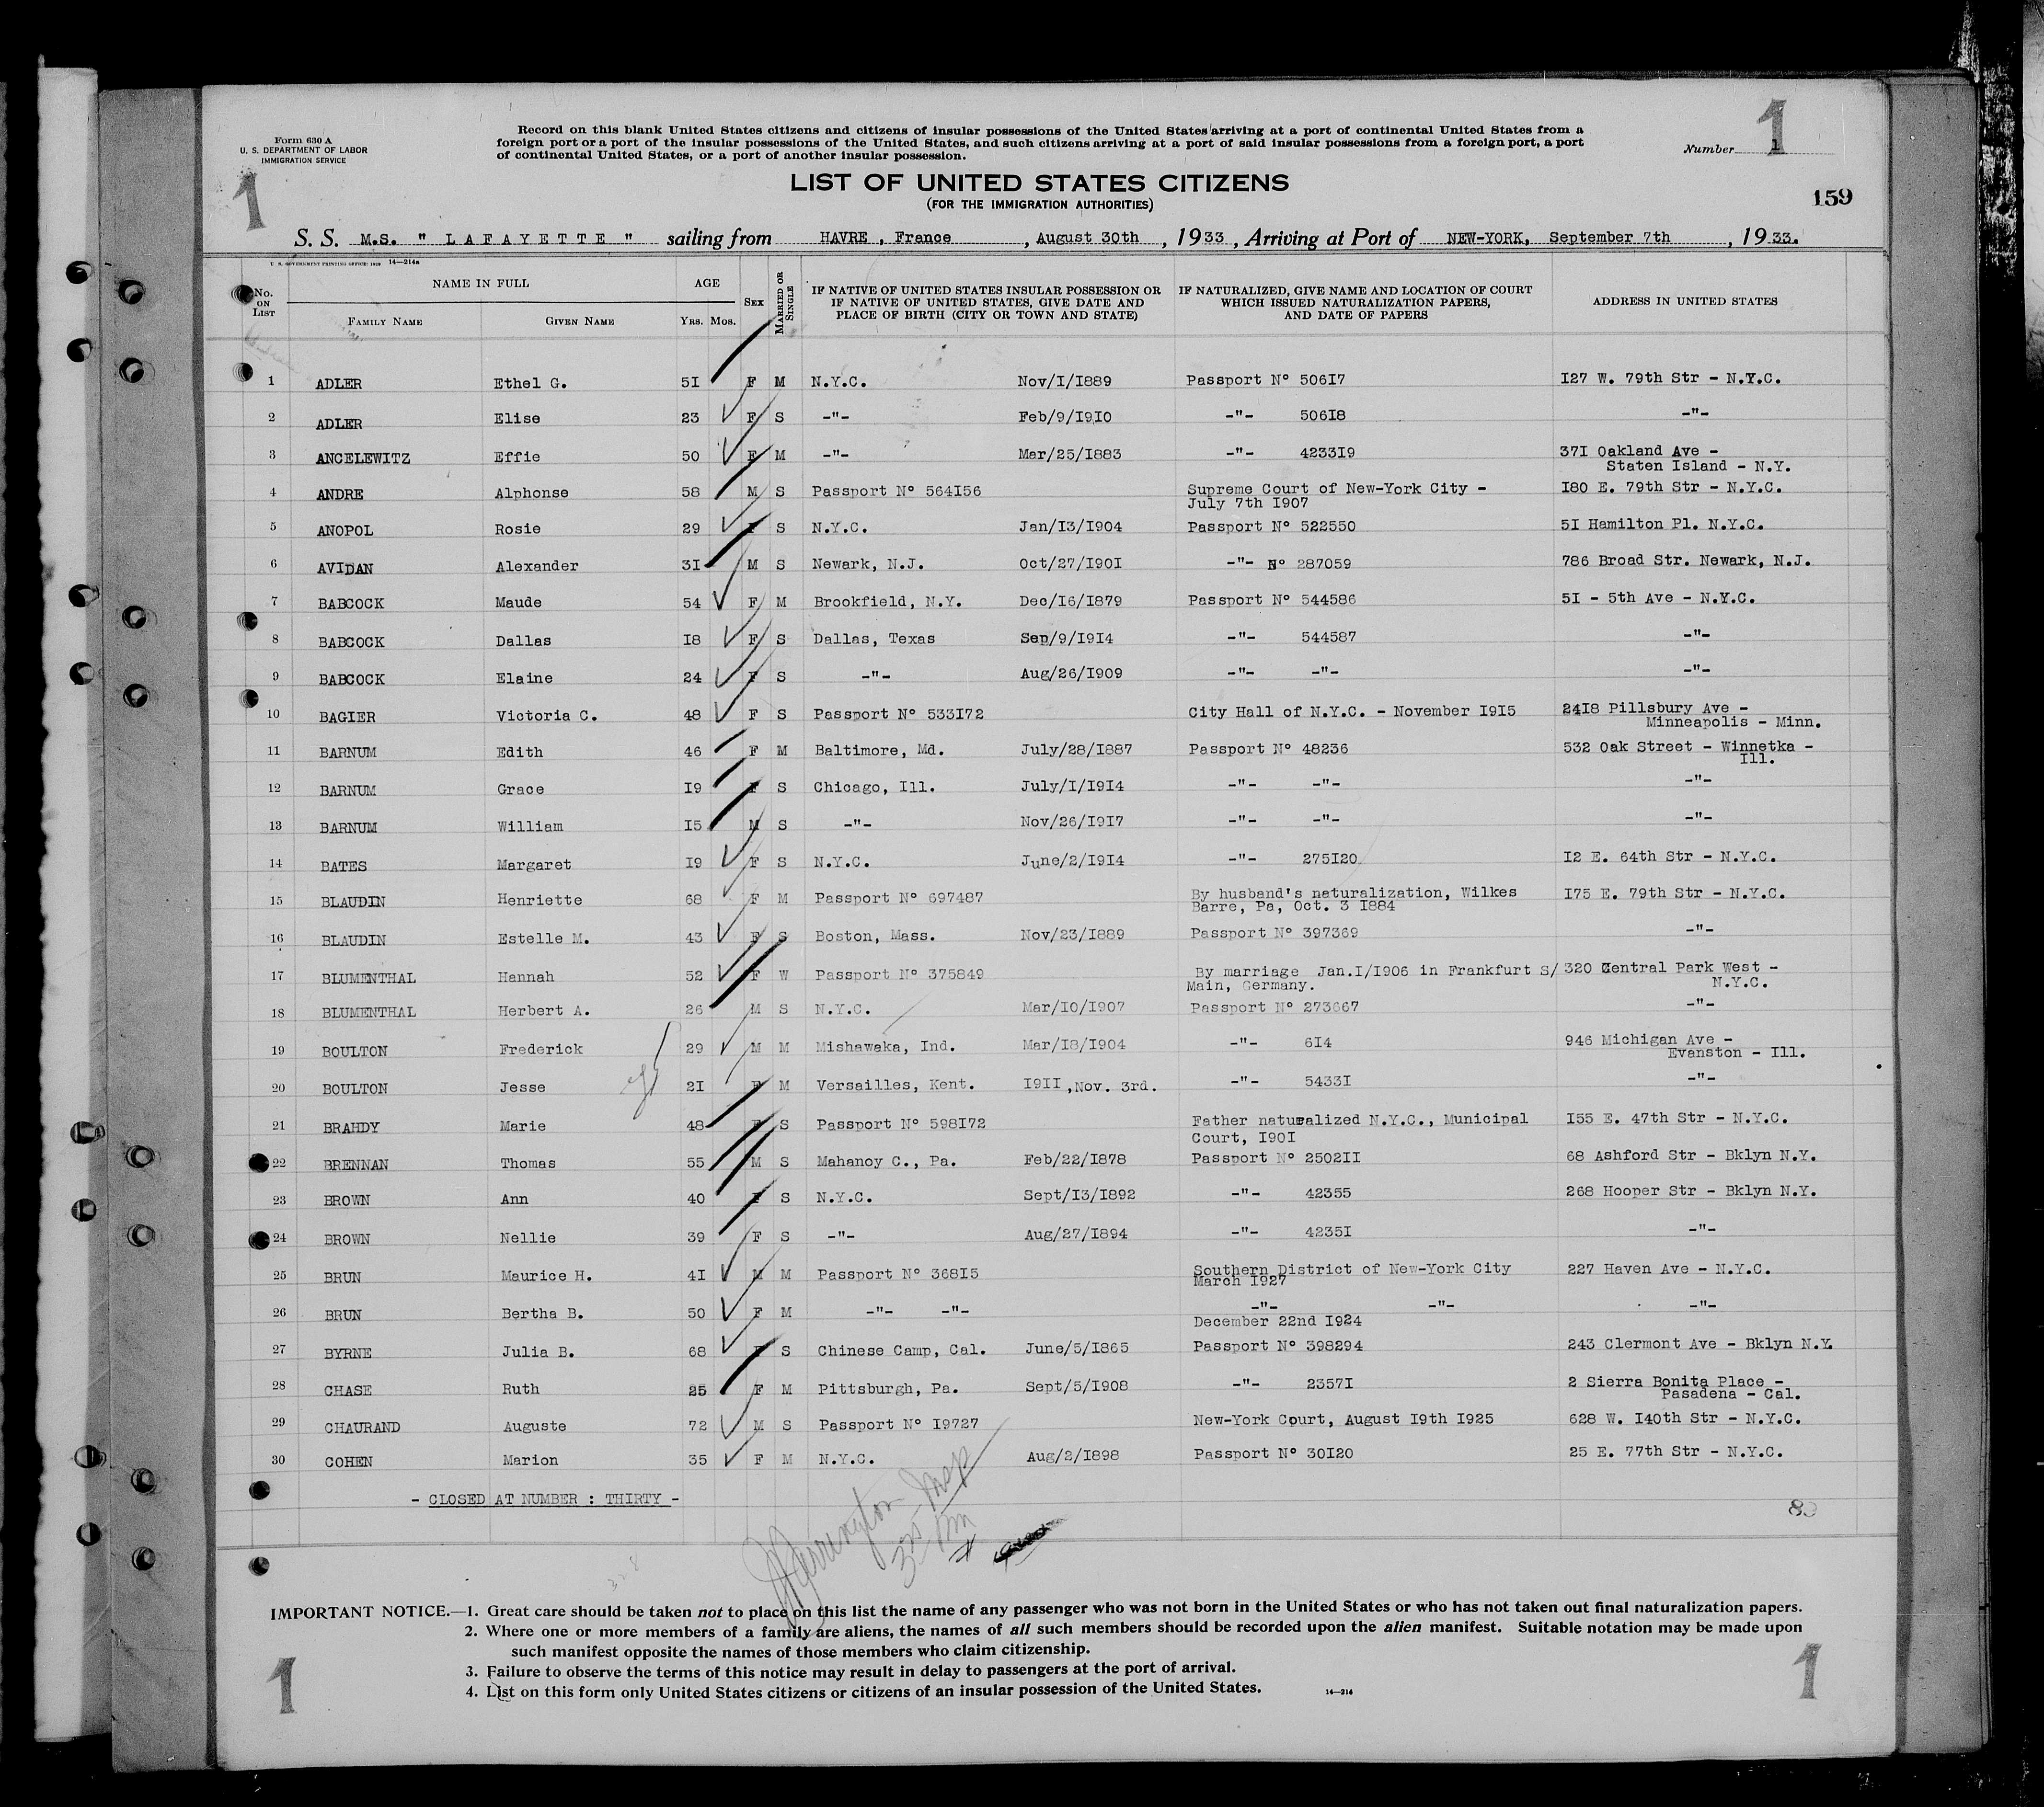 Form 630 A
U. S. DEPARTMENT OF LABOR
IMMIGRATION SERVICE
Record on this blank United States citizens and citizens of insular possessions of the United States arriving at a port of continental United States from a
foreign port or a port of the insular possessions of the United States, and such citizens arriving at a port of said insular possessions from a foreign port, a port
of continental United States, or a port of another insular possession.
Number 1
1
1
LIST OF UNITED STATES CITIZENS
(FOR THE IMMIGRATION AUTHORITIES)
159
S. S. M.S. " LAFAYETTE " sailing from HAVRE , France , August 30th , 1933 , Arriving at Port of NEW-YORK, September 7th , 1933.
U. S. GOVERNMENT PRINTING OFFICE: 1929 14—214a
No. ON LIST NAME IN FULL FAMILY NAME GIVEN NAME AGE YRS. MOS. SEX MARRIED OR SINGLE
IF NATIVE OF UNITED STATES INSULAR POSSESSION OR
IF NATIVE OF UNITED STATES, GIVE DATE AND
PLACE OF BIRTH (CITY OR TOWN AND STATE)
IF NATURALIZED, GIVE NAME AND LOCATION OF COURT
WHICH ISSUED NATURALIZATION PAPERS,
AND DATE OF PAPERS
ADDRESS IN UNITED STATES
1 ADLER Ethel G. 5I F M N.Y.C. Nov/I/I889 Passport N° 506I7 I27 W. 79th Str - N.Y.C.
2 ADLER Elise 23 F S -"- Feb/9/I9I0 -"- 506I8 -"-
3 ANCELEWITZ Effie 50 F M -"- Mar/25/I883 -"- 4233I9 37I Oakland Ave -
Staten Island - N.Y.
4 ANDRE Alphonse 58 M S Passport N° 564I56 Supreme Court of New-York City - I80 E. 79th Str - N.Y.C.
July 7th I907
5 ANOPOL Rosie 29 F S N.Y.C. Jan/I3/I904 Passport N° 522550 5I Hamilton Pl. N.Y.C.
6 AVIDAN Alexander 3I M S Newark, N.J. Oct/27/I90I -"- N° 287059 786 Broad Str. Newark, N.J.
7 BABCOCK Maude 54 F M Brookfield, N.Y. Dec/I6/I879 Passport N° 544586 5I - 5th Ave - N.Y.C.
8 BABCOCK Dallas I8 F S Dallas, Texas Sep/9/I9I4 -"- 544587 -"-
9 BABCOCK Elaine 24 F S -"- Aug/26/I909 -"- -"- -"-
10 BAGIER Victoria C. 48 F S Passport N° 533I72 City Hall of N.Y.C. - November I9I5 24I8 Pillsbury Ave -
Minneapolis - Minn.
11 BARNUM Edith 46 F M Baltimore, Md. July/28/I887 Passport N° 48236 532 Oak Street - Winnetka -
Ill.
12 BARNUM Grace I9 F S Chicago, Ill. July/I/I9I4 -"- -"- -"-
13 BARNUM William I5 M S -"- Nov/26/I9I7 -"- -"- -"-
14 BATES Margaret I9 F S N.Y.C. June/2/I9I4 -"- 275I20 I2 E. 64th Str - N.Y.C.
15 BLAUDIN Henriette 68 F M Passport N° 697487 By husband's naturalization, Wilkes I75 E. 79th Str - N.Y.C.
Barre, Pa, Oct. 3 I884
16 BLAUDIN Estelle M. 43 F S Boston, Mass. Nov/23/I889 Passport N° 397369 -"-
17 BLUMENTHAL Hannah 52 F W Passport N° 375849 By marriage Jan.I/I906 in Frankfurt S/ 320 Central Park West -
Main, Germany. N.Y.C.
18 BLUMENTHAL Herbert A. 26 M S N.Y.C. Mar/I0/I907 Passport N° 273667 -"-
19 BOULTON Frederick 29 M M Mishawaka, Ind. Mar/I8/I904 -"- 6I4 946 Michigan Ave -
Evanston - Ill.
20 BOULTON Jesse 2I F M Versailles, Kent. I9II ,Nov. 3rd. -"- 5433I -"-
21 BRAHDY Marie 48 F S Passport N° 598I72 Father naturalized N.Y.C., Municipal I55 E. 47th Str - N.Y.C.
Court, I90I
22 BRENNAN Thomas 55 M S Mahanoy C., Pa. Feb/22/I878 Passport N° 2502II 68 Ashford Str - Bklyn N.Y.
23 BROWN Ann 40 F S N.Y.C. Sept/I3/I892 -"- 42355 268 Hooper Str - Bklyn N.Y.
24 BROWN Nellie 39 F S -"- Aug/27/I894 -"- 4235I -"-
25 BRUN Maurice H. 4I M M Passport N° 368I5 Southern District of New-York City 227 Haven Ave - N.Y.C.
March I927
26 BRUN Bertha B. 50 F M -"- -"- -"- -"- -"-
December 22nd I924
27 BYRNE Julia B. 68 F S Chinese Camp, Cal. June/5/I865 Passport N° 398294 243 Clermont Ave - Bklyn N.Y.
28 CHASE Ruth 25 F M Pittsburgh, Pa. Sept/5/I908 -"- 2357I 2 Sierra Bonita Place -
Pasadena - Cal.
29 CHAURAND Auguste 72 M S Passport N° I9727 New-York Court, August I9th I925 628 W. I40th Str - N.Y.C.
30 COHEN Marion 35 F M N.Y.C. Aug/2/I898 Passport N° 30I20 25 E. 77th Str - N.Y.C.
- CLOSED AT NUMBER : THIRTY -
Insp
IMPORTANT NOTICE.—1. Great care should be taken not to place on this list the name of any passenger who was not born in the United States or who has not taken out final naturalization papers.
2. Where one or more members of a family are aliens, the names of all such members should be recorded upon the alien manifest. Suitable notation may be made upon
such manifest opposite the names of those members who claim citizenship.
3. Failure to observe the terms of this notice may result in delay to passengers at the port of arrival.
4. List on this form only United States citizens or citizens of an insular possession of the United States. 14—214
1
1